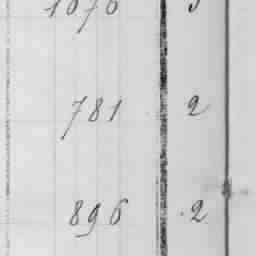 781 2
896 2